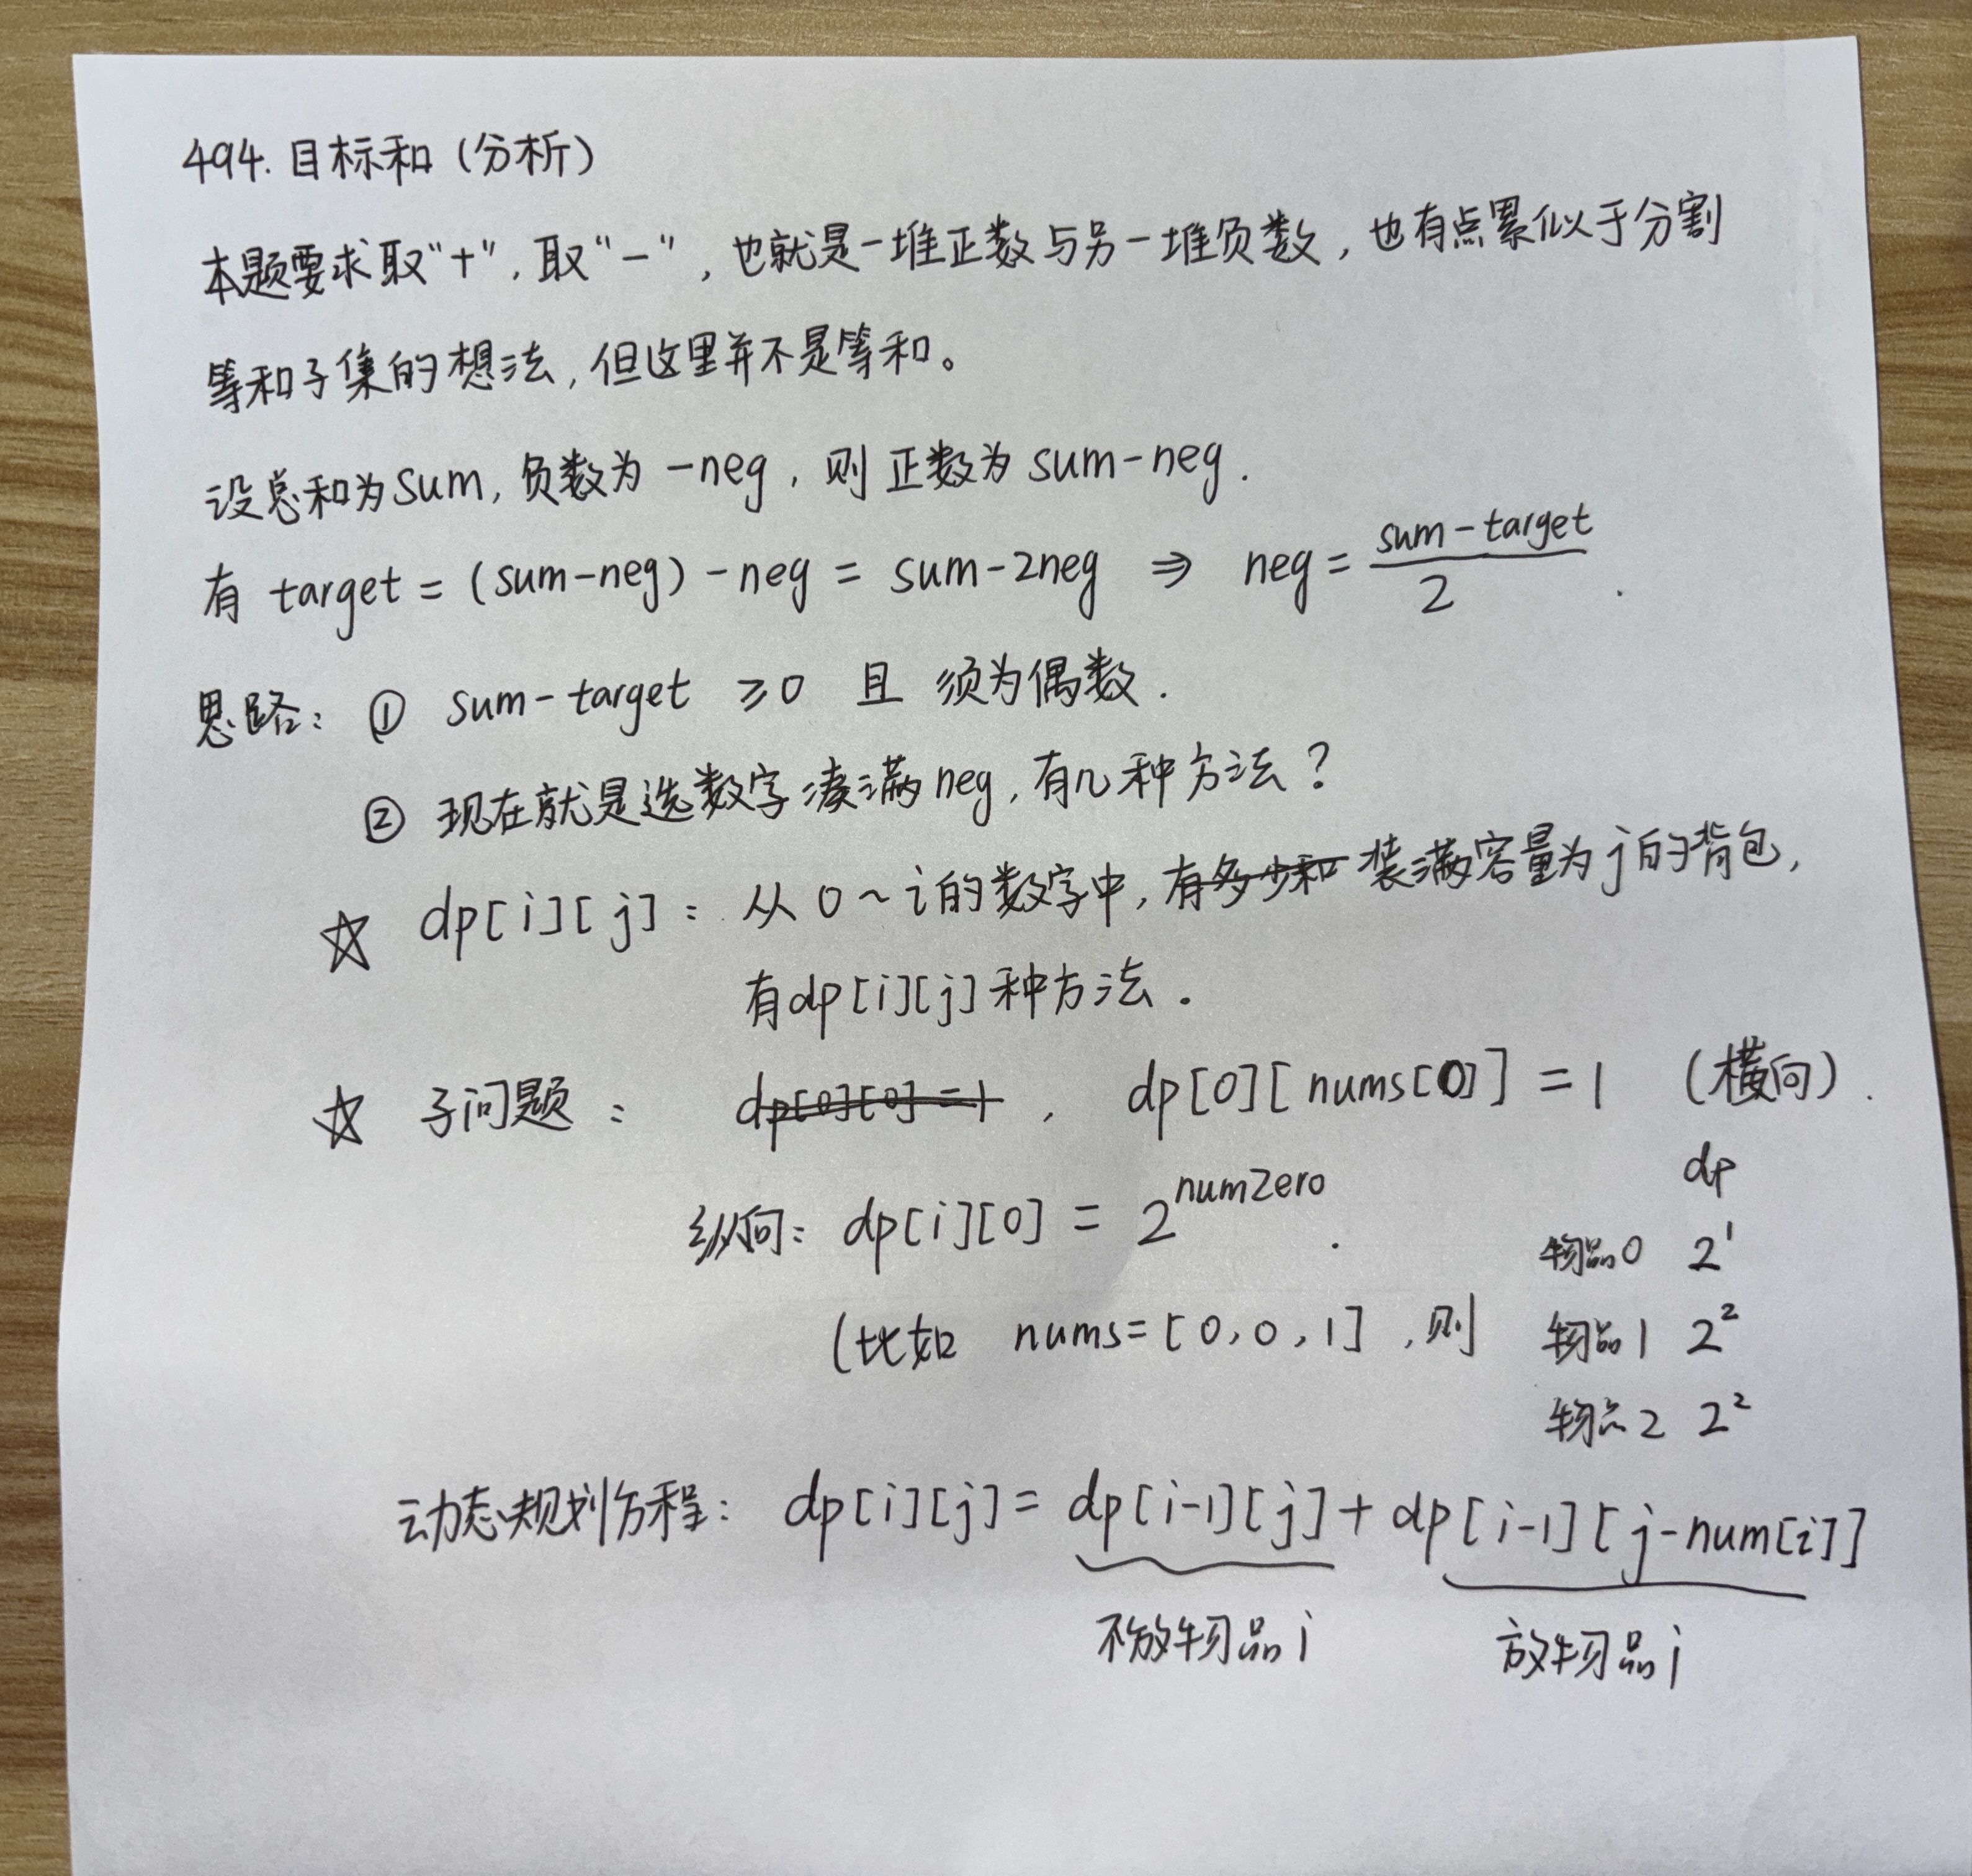 494. 目标和 (分析)
本题要求取"+", 取"-", 也就是一堆正数与另一堆负数, 也有点累似于分割
等和子集的想法, 但这里并不是等和。
设总和为sum, 负数为 -neg, 则正数为 sum-neg.
有 target = (sum-neg) -neg = sum-2neg ⇒ neg = \frac{sum-target}{2}.
思路: ① sum-target ≥0 且 须为偶数.
② 现在就是选数字凑满neg, 有几种方法?
☆ dp[i][j]: 从 0~i的数字中, 有多少和 装满容量为j的背包,
有dp[i][j]种方法.
☆ 子问题: dp[0][0]=1, dp[0][nums[0]] = 1 (横向).
dp
纵向: dp[i][0] = 2^{numZero}.
物品0 2^1
(比如 nums=[0,0,1], 则 物品1 2^2
物品2 2^2
动态规划方程: dp[i][j] = dp[i-1][j] + dp[i-1][j-num[i]]
不放物品i 放物品i